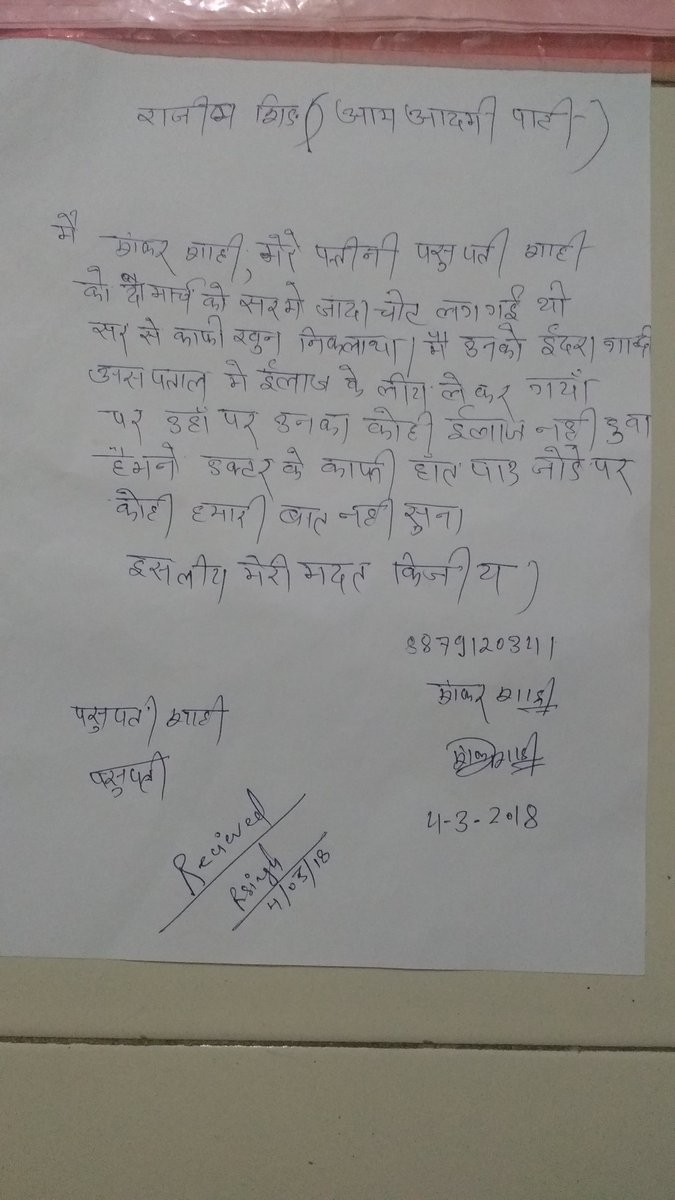 राजीव सिंह (आम आदमी पार्टी)
मै शंकर शाही, मेरे पत्नीनी पसुपती शाही
को दो मार्च को सरमे जादा चोट लग गई थी
सर से काफी खुन निकलाथा। मै उनको ईंदरा गाधी
असपताल मे ईलाज के लीय ले कर गयाँ
पर उहाँ पर उनका कोही ईलाज नही हुवा
हैमने डक्टर के काफी हात पाउ जोडे पर
कोही हमारी बात नही सुना
इसलीय मेरी मदत किजीय)
8879120341
शंकर शाही
पसुपती शाही
पसुपती
4-3-2018
Recieved
RSingh
4/03/18